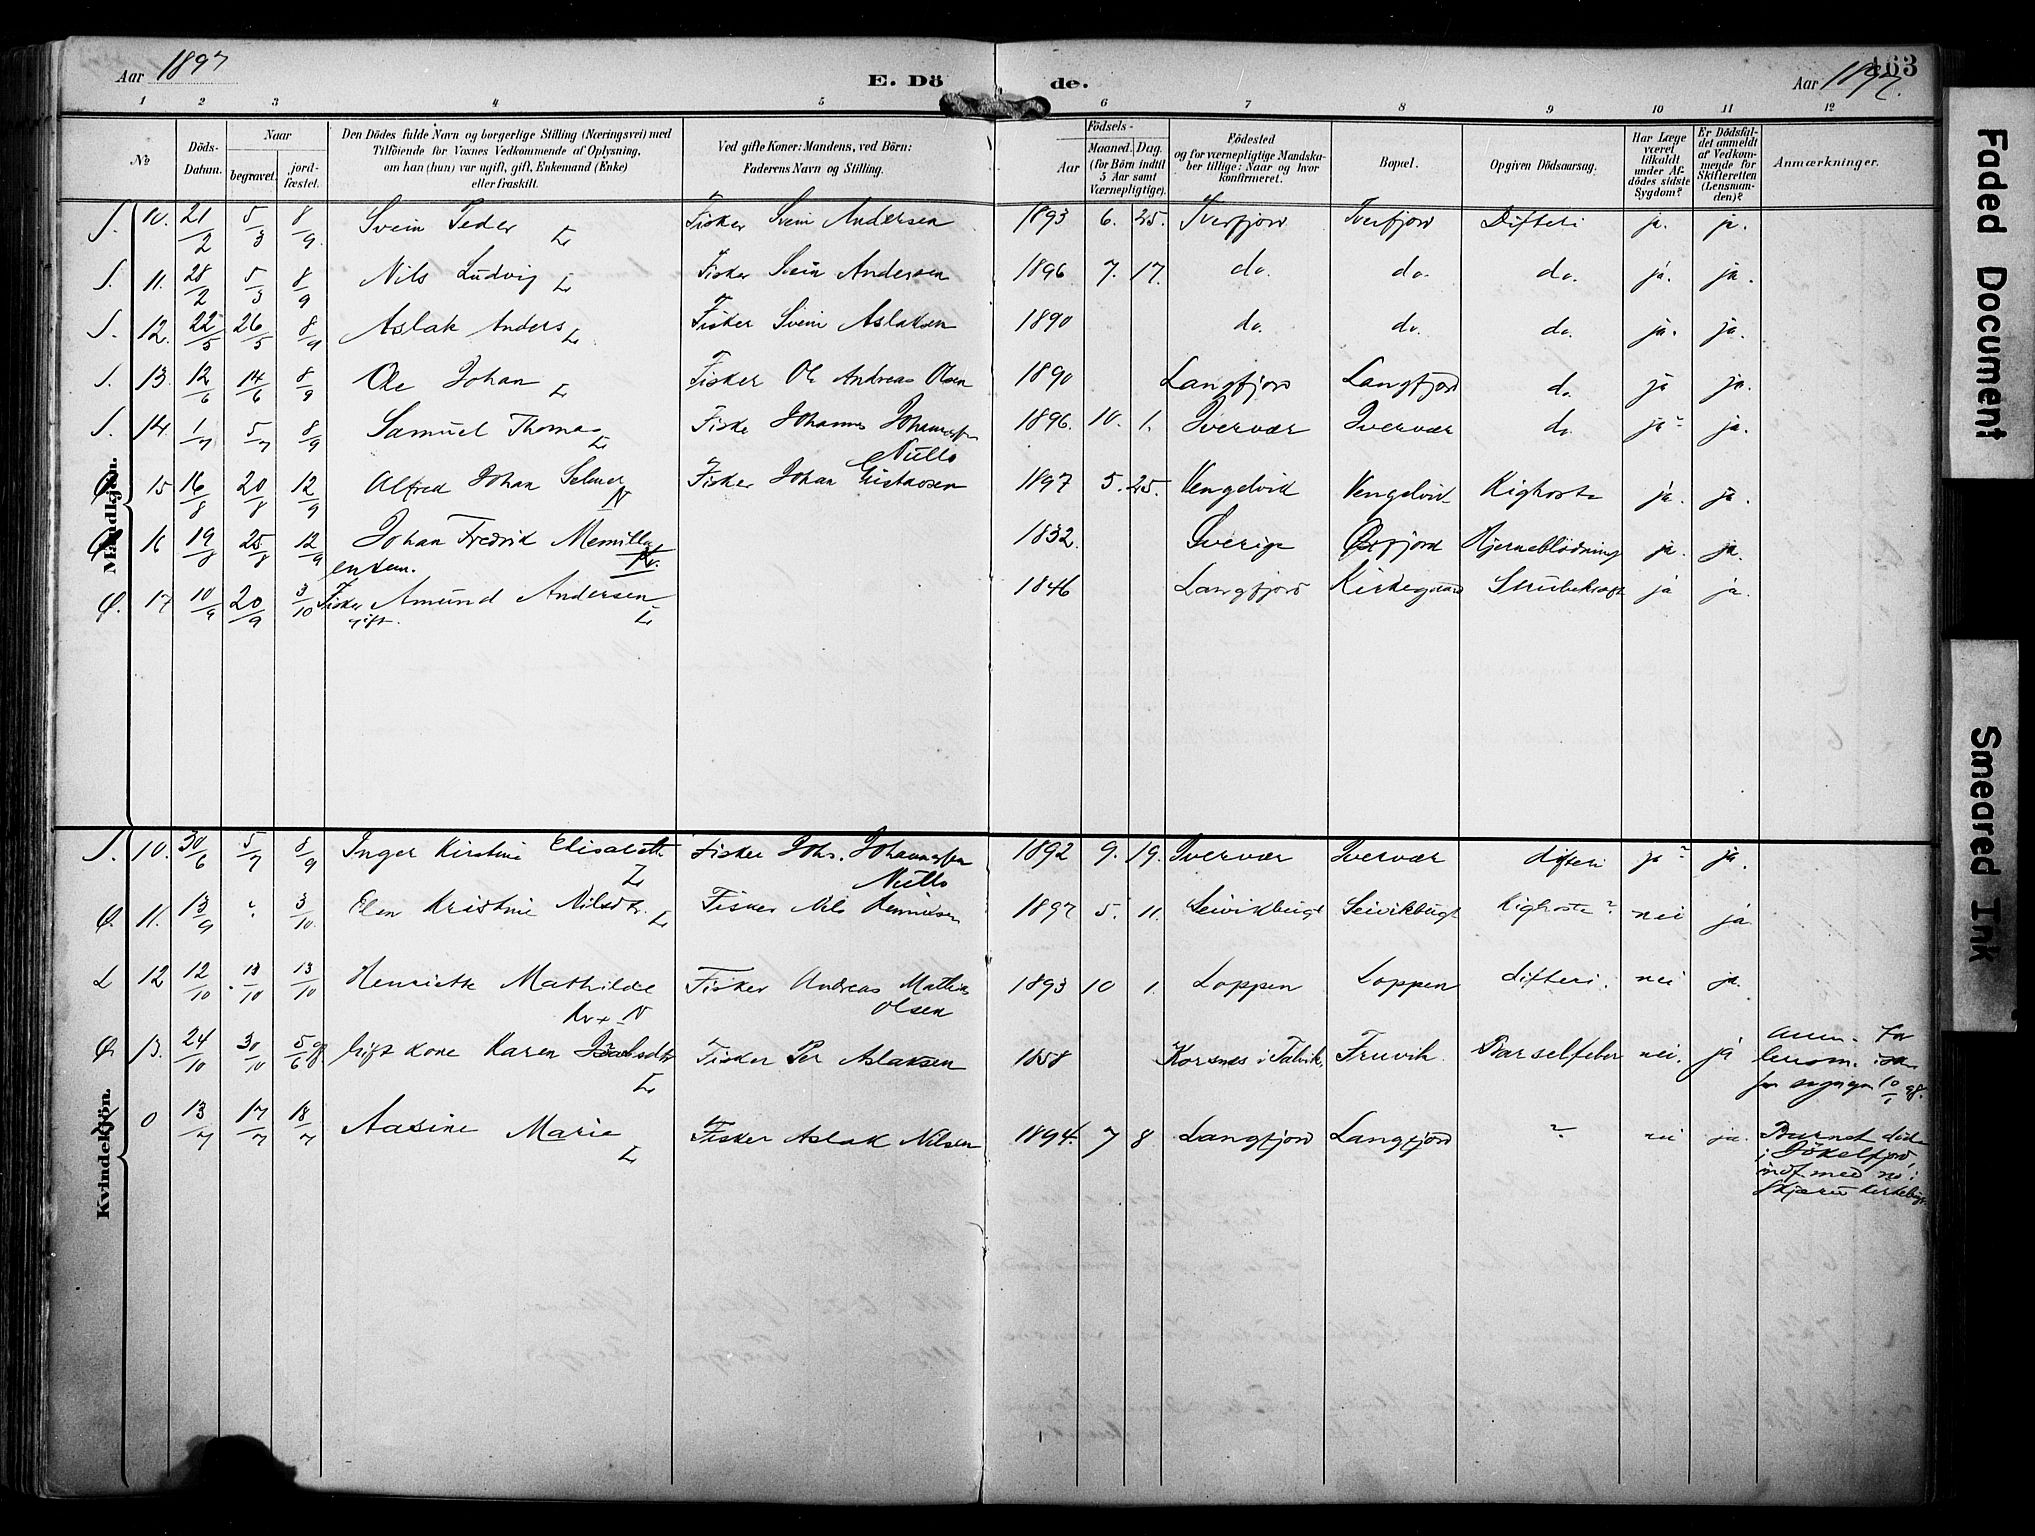 Aar 1897
E. Dö
de.
463
Aar 1897.
1 2 3 4 5 6 7 8 9 10 11 12
No
Döds-Datum.
Naar
begravet.
jord-fæstet.
Den Dödes fulde Navn og borgerlige Stilling (Næringsvei) med
Tilföiende for Voxnes Vedkommende af Oplysning,
om han (hun) var ugift, gift, Enkemand (Enke)
eller fraskilt.
Ved gifte Koner: Mandens, ved Börn:
Faderens Navn og Stilling.
Födsels-
Aar
Maaned. Dag.
(for Börn indtil
5 Aar samt
Værnepligtige).
Födested
og for værnepligtige Mandska-
ber tillige: Naar og hvor
konfirmeret.
Bopæl.
Opgiven Dödsaarsag.
Har Læge
været
tilkaldt
under Af-
dödes sidste
Sygdom?
Er Dödsfal-
det anmeldt
af Vedkom-
mende for
Skifteretten
(Lensman-
den)?
Anmærkninger.
Mandkjön.
S. 10. 21/2 5/3 8/9. Svein Peder L. Fisker Svein Andersen 1893 6. 25. Tverfjord Tverfjord Difteri ja. ja.
S. 11. 28/2 5/3 8/9 Nils Ludvig L. Fisker Svein Andersen 1896 7. 17. do. do. do. ja. ja.
S. 12. 22/5 26/5 8/9 Aslak Anders L. Fisker Svein Aslaksen 1890 do. do. do. ja. ja.
S. 13. 12/6 14/6 8/9 Ole Johan L. Fisker Ole Andreas Olsen 1890 Langfjord Langfjord do. ja ja.
S. 14. 1/7 5/7 8/9 Samuel Thomas L. Fisker Johannes Johannessen Nullo 1896. 10. 1. Ivervær Ivervær do. ja? ja.
15 16/8 20/8 12/9 Alfred Johan Selmer N Fisker Johan Gustavsen 1897 5. 25. Vengelvik Vengelvik Kighoste ja. ja.
16 19/8 25/8 12/9 Johan Fredrik Memilla
enkem. 1832. Sverige Øxfjord Hjerneblödning ja. ja.
Ø. 17 10/9 20/9 3/10 Fisker Amund Andersen
gift. L. 1846 Langfjord Kirkegaard Strubekræft ja ja.
Kvindekjön.
S. 10. 30/6 5/7 8/9 Inger Kirstine Elisabeth L. Fisker Johs. Johannessen Nullo 1892 9. 19. Ivervær Ivervær difteri ja? ja.
Ø. 11. 13/9 ? 3/10. Elen Kristine Nilsdtr. L. Fisker Nils 1897 5. 11. Seivikbugt Seivikbugt Kighoste? nei ja
L 12 12/10 13/10 13/10 Henriette Mathilde
Kv + N Fisker Andreas Mathis
Olsen 1893 10 1. Loppen Loppen difteri. nei ja.
Ø 13. 24/10 30/10 5/6 98 Gift kone Karen L. Fisker Per Aslaksen 1858 Korsnes i Talvik. Fruvik. Barselfeber nei. ja
0 13/7 17/7 18/7 Aasine Marie L. Fisker Aslak Nilsen 1894. 7 8 Langfjord Langfjord ? nei ja. Barnet döde
i Jökelfjord,
indf. med no i
Skjervö kirkebog.
Faded Document
Smeared Ink